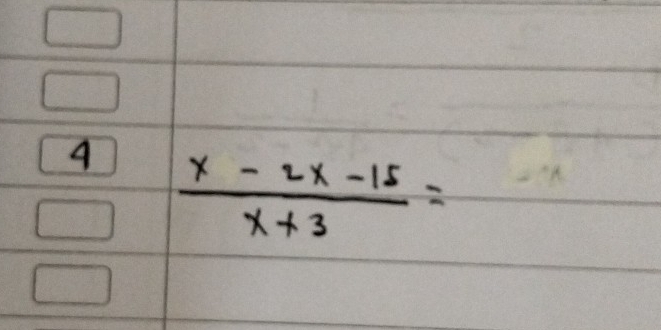 4
x - 2x - 15
x + 3
=